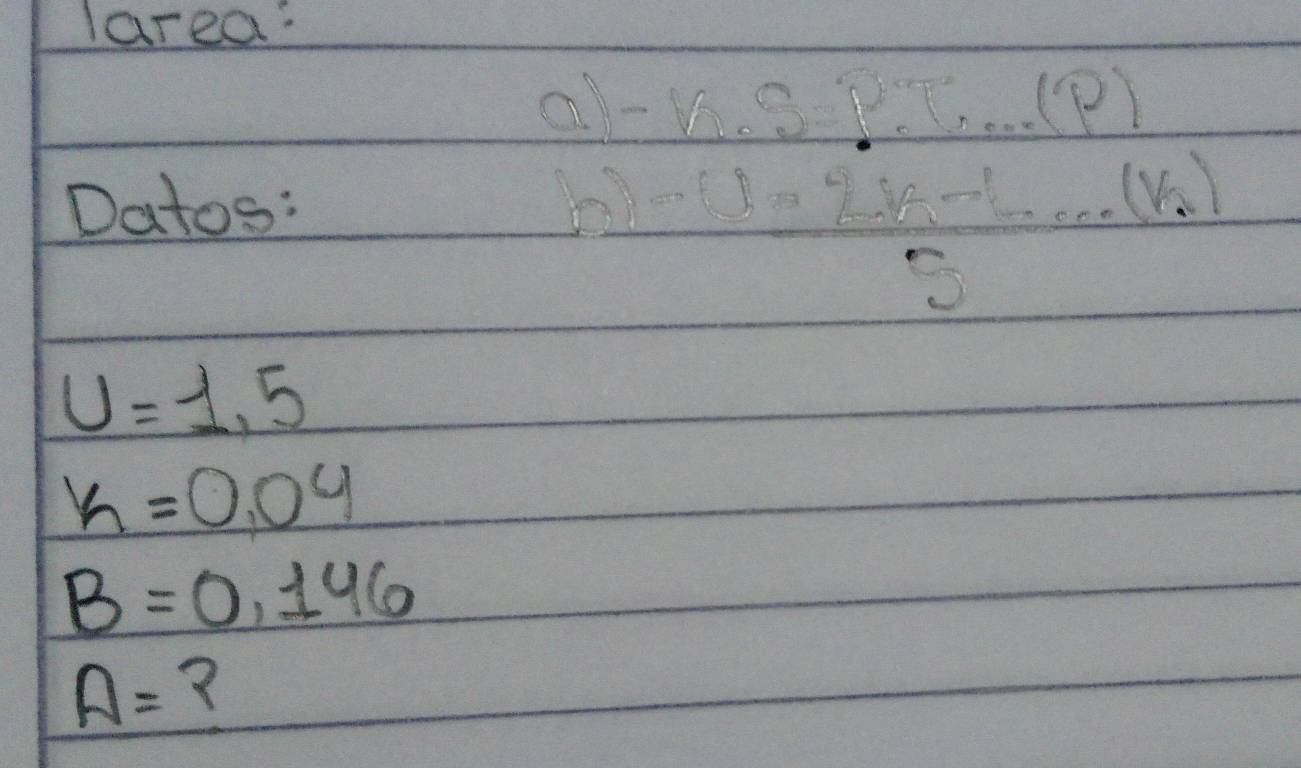 Tarea:
a)- K.S=P.T...(P)
Datos:
b)-U = 2K-L...(K)
S
U=1,5
K=0,04
B=0,146
A=?